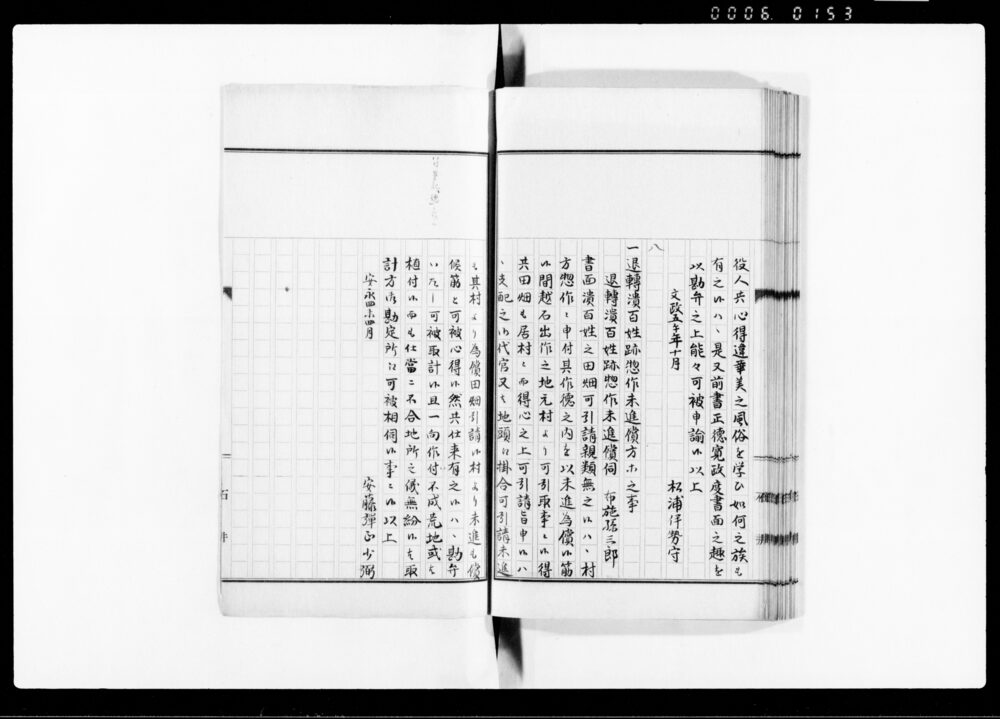 0006.0153
役人共心得違華美之風俗を学ひ如何之族も
有之候ハヽ是又前書正徳寛政度書面之趣を
以勘弁之上能々可被申諭候以上
文政五午年十月
松浦伊勢守
八
一退轉潰百姓跡惣作未進償方ホ之事
退轉潰百姓跡惣作未進償伺 布施孫三郎
書面潰百姓之田畑可引請親類無之候ハヽ村
方惣作ニ申付其作徳之内を以未進為償候筋
候間越石出作之地元村より可引取事ニ候得
共田畑も居村ニ而得心之上可引請旨申候ハ
ヽ支配之御代官又も地頭江掛合可引請未進
も其村より為償田畑引請候村より未進も償
候筋と可被心得候然共仕来有之候ハヽ勘弁
いたし可被取計候且一向作付不成荒地或も
植付候而も仕當ニ不合地所之儀無紛候を取
計方御勘定所江可被相伺候事ニ候以上
安永四未四月
安藤弾正少弼
石井